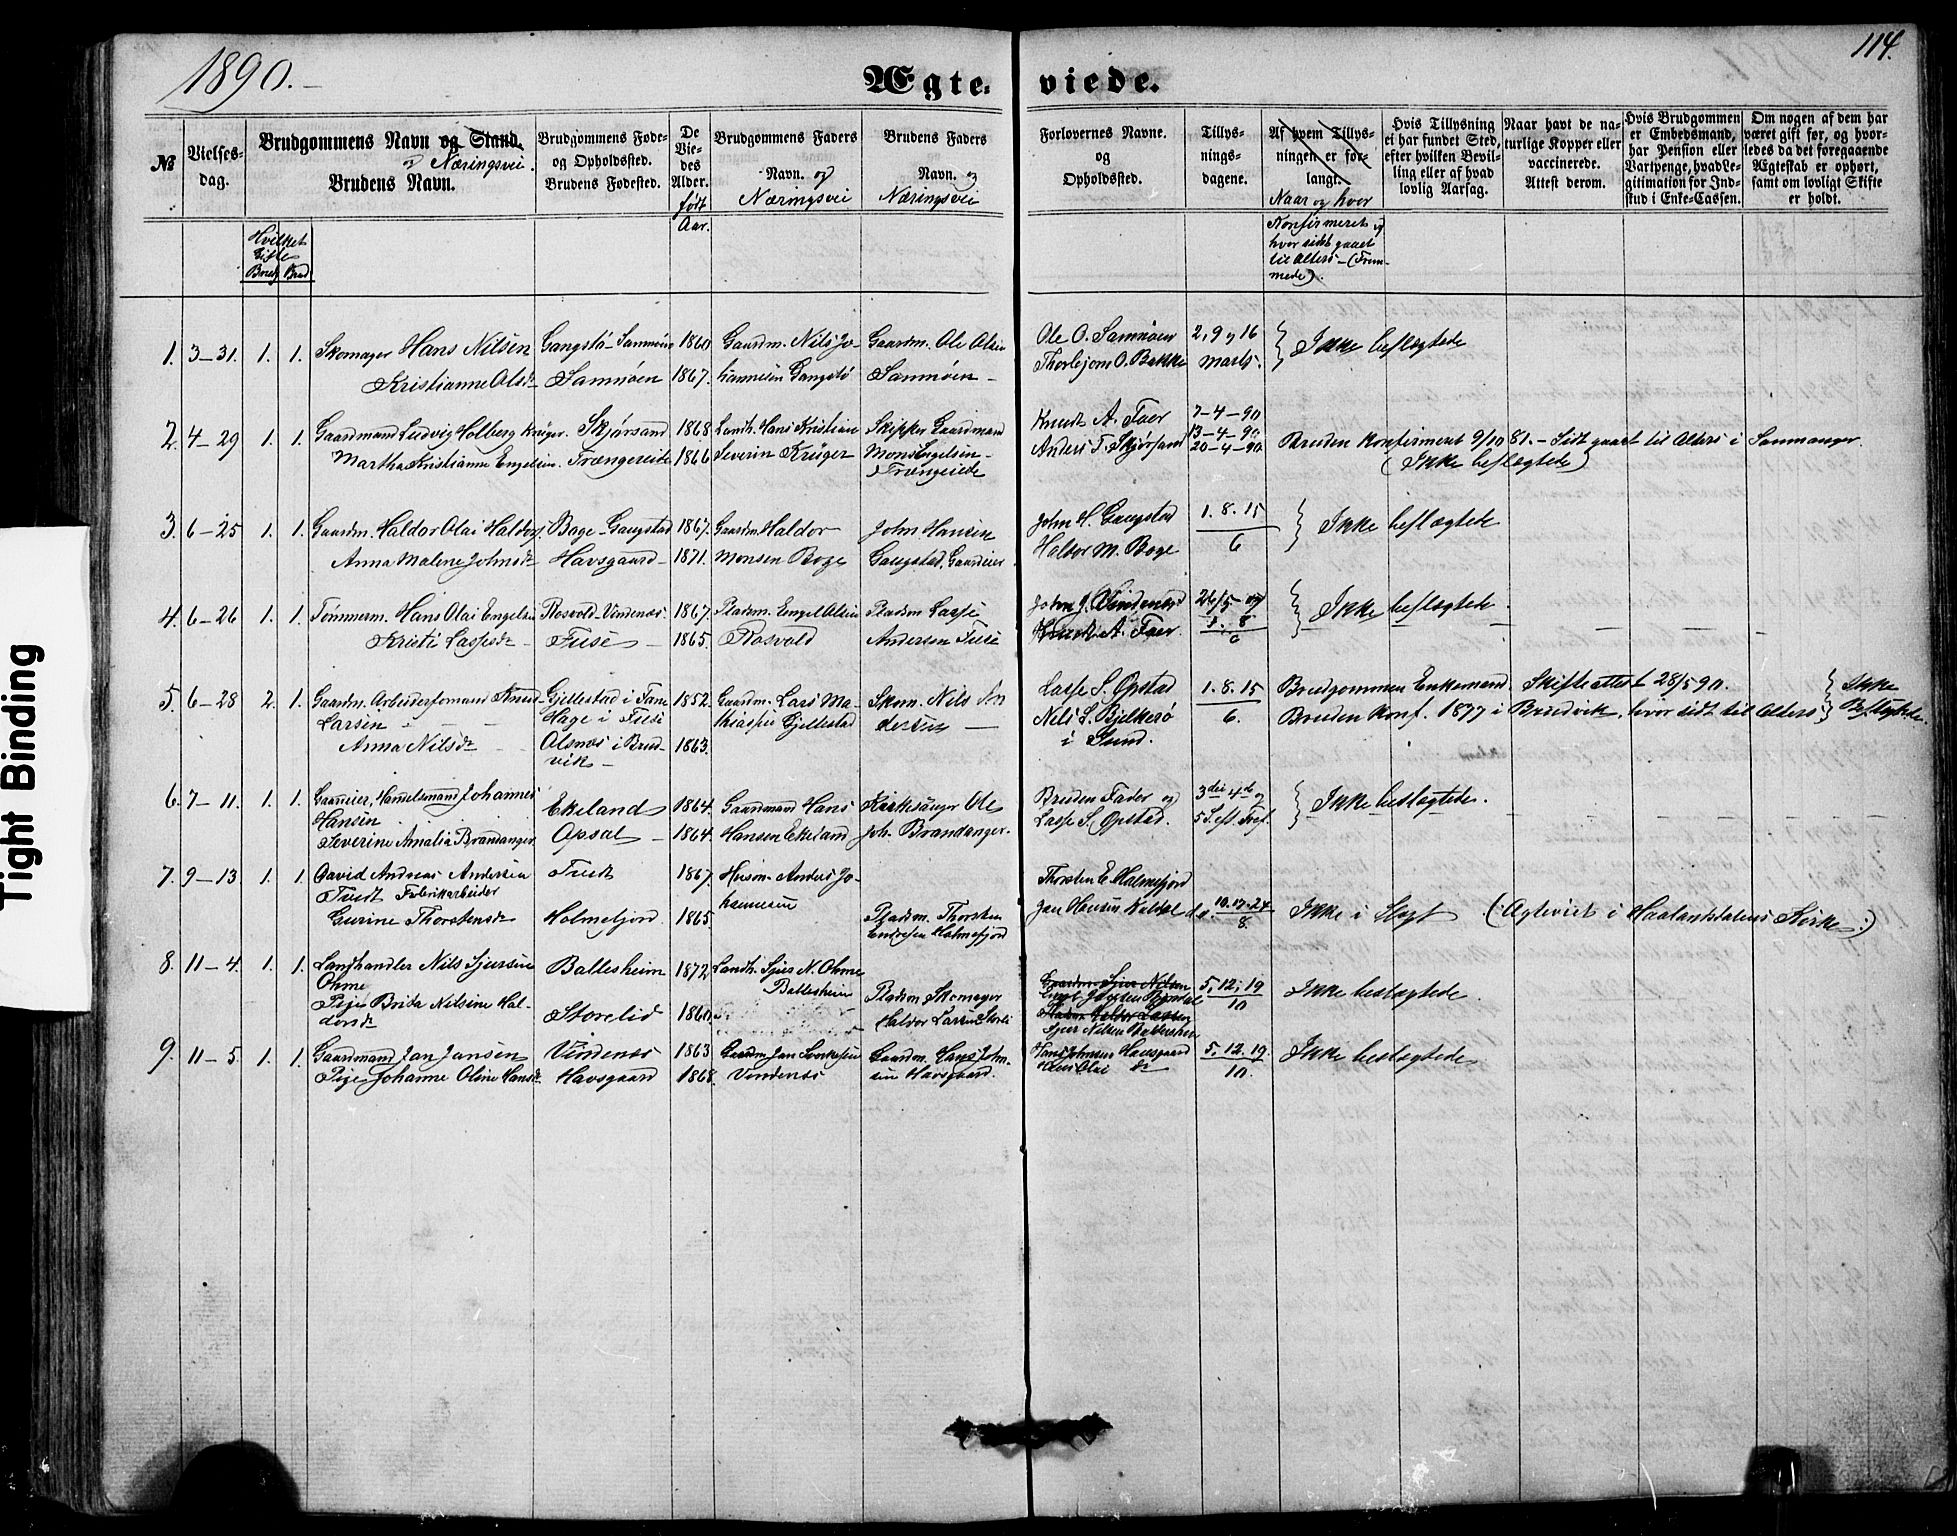 1890.
114.
Ægte- viede.
№
Vielses-
dag.
Brudgommens Navn og Stand.
Næringsvei
Brudens Navn.
Brudgommens Føde-
og Opholdssted.
Brudens Fødested.
De
Vie-
des
Alder.
født
Aar.
Brudgommens Faders
Navn. og
Næringsvei
Brudens Faders
Navn. og
Næringsvei
Forlovernes Navne.
og
Opholdssted.
Tillys-
nings-
dagene.
Af hvem Tillys-
ningen er for-
langt.
Naar og hvor
Konfirmeret og
hvor sidst gaaet
til Alters – (Frem-
mede).
Hvis Tillysning
ei har fundet Sted,
efter hvilken Bevil-
ling eller af hvad
lovlig Aarsag.
Naar havt de na-
turlige Kopper eller
vaccinerede.
Attest derom.
Hvis Brudgommen
er Embedsmand,
har Pension eller
Vartpenge, hvad Le-
gitimation for Ind-
skud i Enke-Cassen.
Om nogen af dem har
været gift før, og hvor-
ledes da det foregaaende
Ægteskab er ophørt,
samt om lovligt Skifte
er holdt.
Hvilket
Gifte
Brudg Brud
1. 3–31. 1. 1. Skomager Hans Nilsen Gangstø–Samnøen 1860 Gaardm. Nils Jo- Gaardm. Ole Olsen Ole O. Samnøen 2, 9 og 16 Ikke beslægtede
Kristianne Olsdr Samnøen 1867. hannesen Gangstø Samnøen – Thorbjørn O. Bakke Marts.
2. 4–29 1. 1. Gaardmand Ludvig Holberg Krüger. Skjørsand 1868 Landh. Hans Kristian Skipper Gaardmand Knud A. Tøer 7–4–90
Martha Kristianne Engelsen. Trængereide 1866 Severin Krüger Mons Engelsen– Anders T. Skjørsand 13–4–90 Bruden konfirmeret 9/10 81. – Sidst gaaet til Alters i Samnanger.
Trængereide 20–4–90 (Ikke beslægtede)
3. 6–25 1. 1. Gaardm. Haldor Olai Haldors. Boge–Gaugstad 1867. Gaardm. Haldor John Hansen John H. Gaugstad 1. 8. 15 Ikke beslægtede
Anna Malene Johnsdr Havsgaard – 1871. Monsen Boge Gaugstad, Gaardeier Haldor M. Boge 6
4. 6–26 1. 1. Tømmerm. Hans Olai Engelsen Rosvold–Vindenes. 1867. Pladsm. Engel Olsen Pladsm Lasse John J. Vindenes 26/5 og Ikke beslægtede
Kristi Lassesdr – Fuse – 1865. Rosvold Andersen Fuse Knud A. Tøer. 1. 8 6
5. 6–28 2. 1. Gaardm. Arbeidsformand Knud Gjellestad i Fane 1852. Gaardm. Lars Ma- Skm. Nils An Lasse S. Opstad 1. 8. 15 Brudgommen Enkemand. Skifteattest 28/5 90. Ikke
Larsen – Hage i Fuse thiasen Gjellestad dersen – Nils S. Bjelkerø 6. Bruden konf. 1877 i Brudvik, hvor sidst til Alters Beslægtede
Anna Nilsdr Olsnes i Brud- 1863. i Sund.
vik –
6. 7–11. 1. 1. Gaardeier, Handelsmand Johannes Ekeland 1864. Gaardmand Hans Kirkesanger Ole Brudens Fader og 3die 4de og Ikke beslægtede.
Hansen
Severine Amalia Brandanger Opsal – 1864. Hansen Ekeland Joh. Brandanger. Lasse S. Opstad. 5 S. eft. Tref.
7. 9–13 1. 1. David Andreas Andersen Tuedt 1867. Husm. Anders Jo- Thorsten E. Holmefjord
Tuedt Fabrikarbeider hannesen
Gurine Thorstensdr Holmefjord 1865. Pladsm. Thorsten Jan Hansen 10. 17. 24 Ikke i Slægt (Ægteviet i Haalandsdalens Kirke.)
Endresen Holmefjord 8.
8. 11–4. 1. 1. Landhandler Nils Sjursen Ballesheim 1872. Landh. Sjur N. Ohme Gaardm. Sjur Nilsen 5, 12, 19 Ikke beslægtede.
Ohme Ballesheim 10
Pige Brita Nilsine Hal- Storelid 1860. Pladsm Skomager
dorsdr Haldor Larsen Storli Sjur Nilsen Ballesheim
9. 11–5. 1. 1. Gaardmand Jan Jansen Vindenes 1863 Gaardm Jan Sørensen Gaardm. Hans John- Hans Johnsen Havsgaard 5. 12. 19. Ikke beslægtede
Pige Johanne Oline Hansdr Havsgaard 1868. Vindenes sen Havsgaard. Hans Olai 10.
Tight Binding